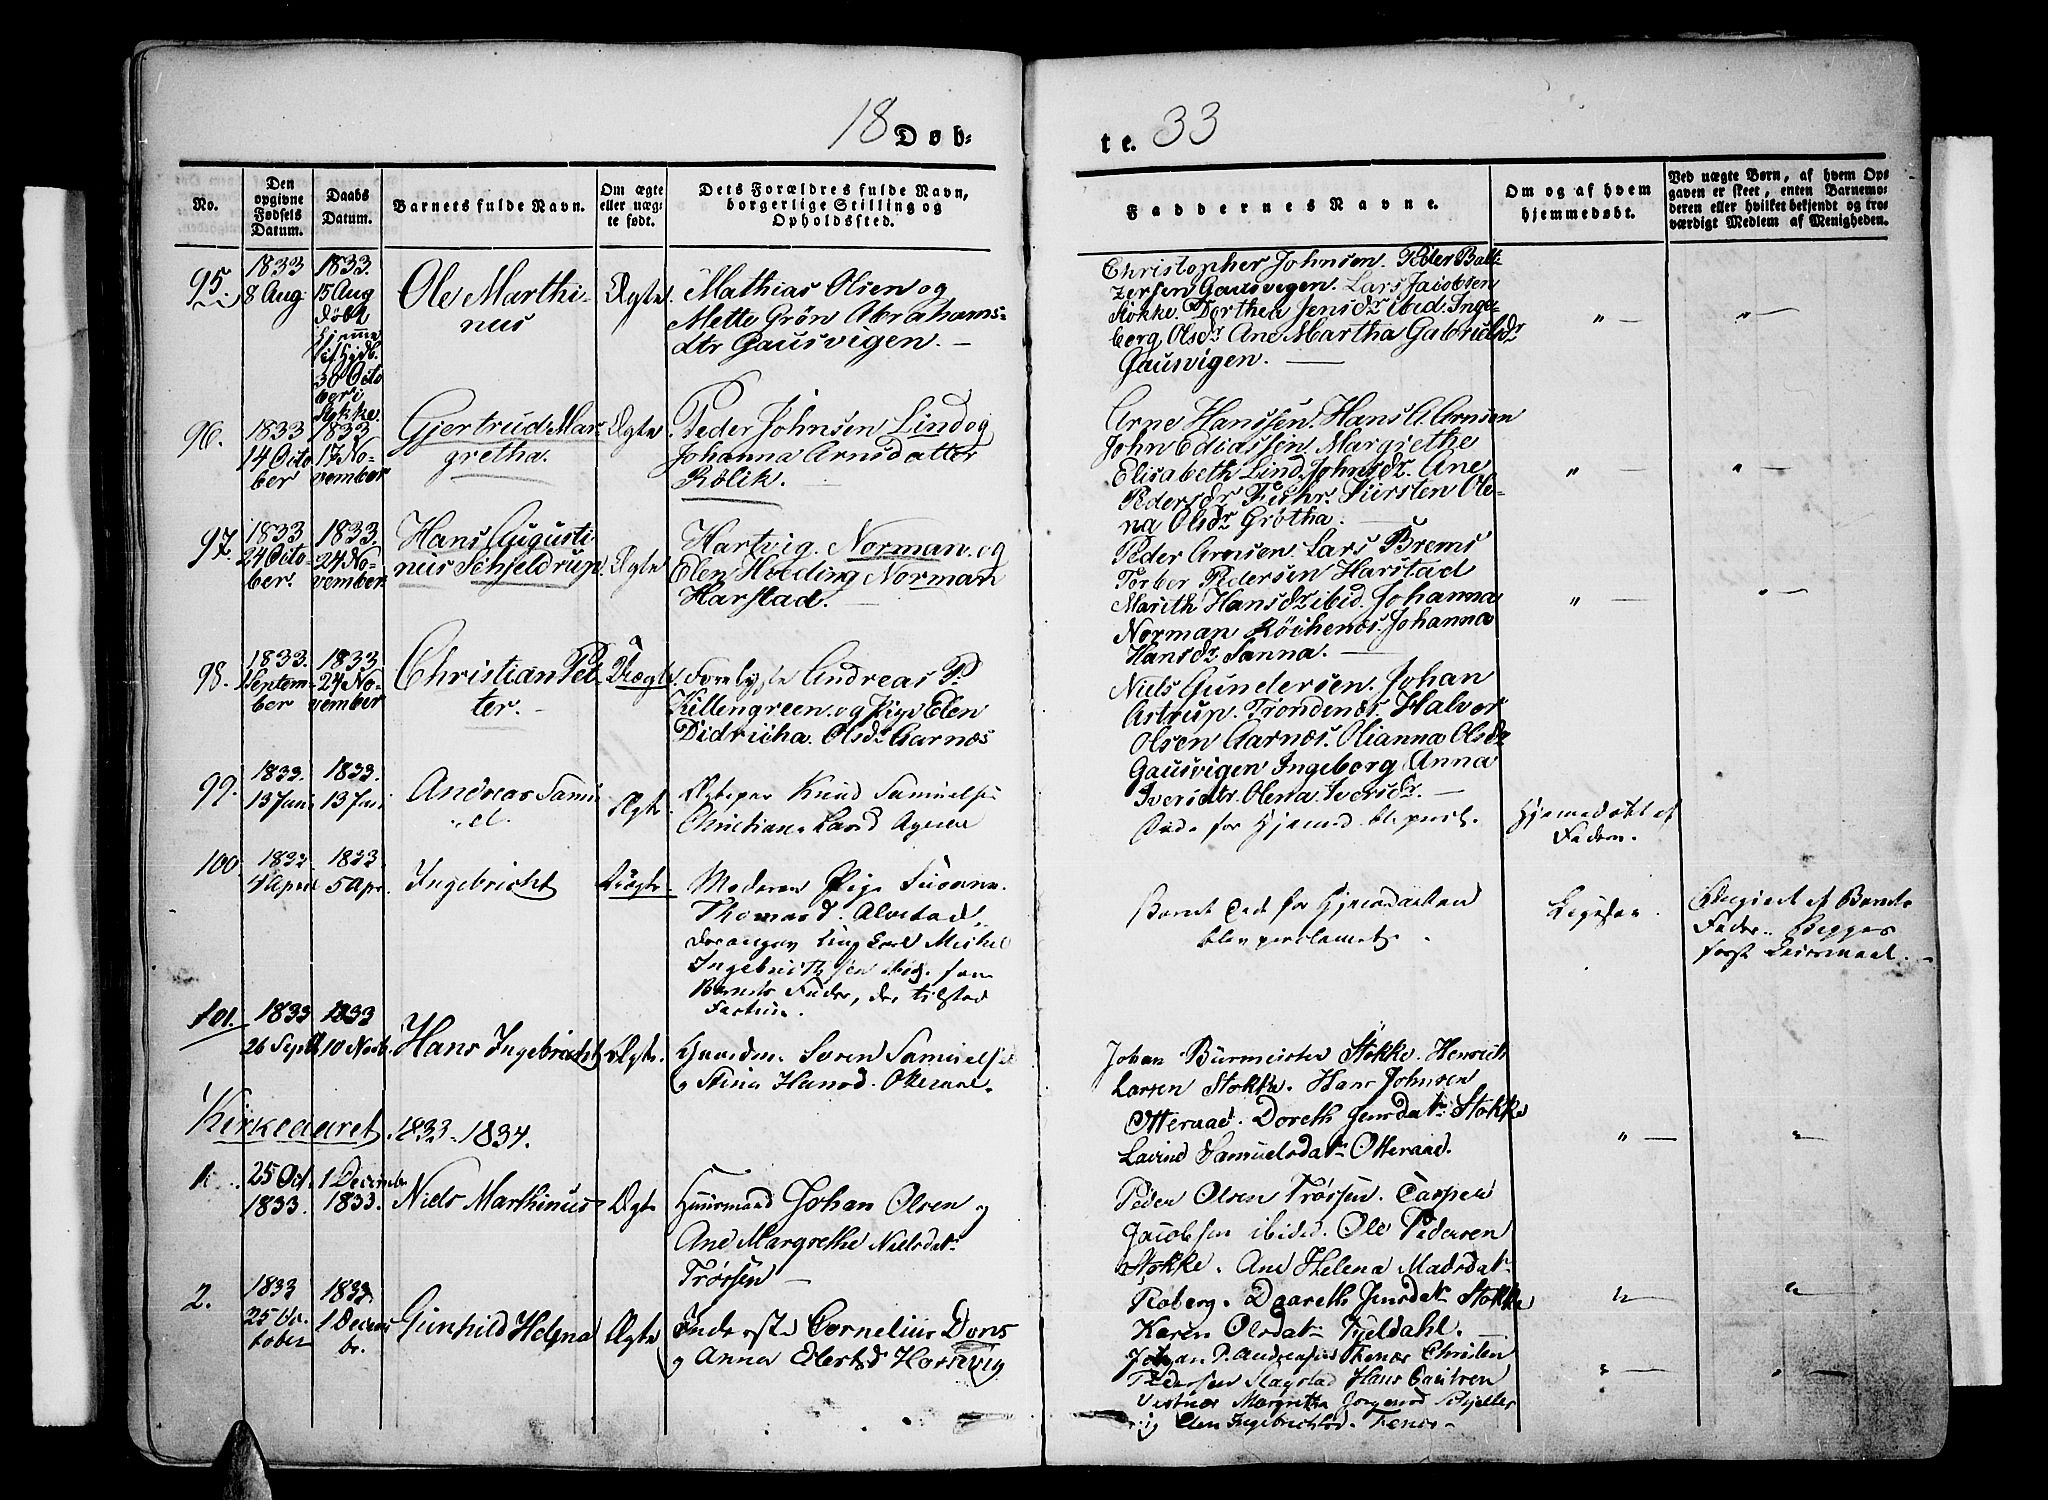 18 Døb-
te. 33
No.
Den opgivne Fødsels Datum.
Daabs Datum.
Barnets fulde Navn.
Om ægte eller uægte født.
Dets Forældres fulde Navn, borgerlige Stilling og Opholdssted.
Faddernes Navne.
Om og af hvem hjemmedøbt.
Ved uægte Børn, af hvem Opgaven er skeet, enten Barnemoderen eller hvilket bekjendt og troværdigt Medlem af Menigheden.
95.
1833
8 Aug
1833.
15 Aug
døbt
hjemme
30 Octo
ber i
Stokke.
Ole Marthi-
nus
Ægte.
Mathias Olsen og
Mette Grøn Abrahams-
dtr Gausvigen. —
Christopher Johnsen. Peder Balt-
zersen Gausvigen. Lars Jacobsen
Stokke. Dorthea Jensdr ibid. Inge-
berg Olsdr Ane Martha Gabrielsdr
Gausvigen. —
" —
" —
96.
1833
14 Octo
ber
1833
17 No-
vember
Gjertrud Mar-
gretha.
Ægte
Peder Johnsen Lind og
Johanna Arnsdatter
Rølik. —
Arne Hanssen. Hans A. Arnsen
John Ediassen Margrethe
Elisabeth Lind. Johnsdr. Ane
Pedersdr Kirsten Ole-
na Olsdr Grøtha. —
" —
" —
97.
1833
24 Octo-
ber.
1833.
24 No-
vember
Hans Augusti-
nus Schjeldrup.
Ægte
Hartvig Norman og
Elen Holding Norman
Harstad. —
Peder Arnsen. Lars Brems
Torber Pedersen Harstad
Marith Hansdr ibid. Johanna
Norman Røchenes. Johanna
Hansdr Sanna. —
" —
" —
98.
1833.
1 Septem-
ber
1833
24 No-
vember
Christian Pet-
ter. —
Uægte.
Andreas P.
Killengreen og Pige Elen
Didricha Olsdr Aarnæs
Niels Gundersen. Johan
Astrup. Trondenæs. Halvor
Olsen Aarnæs. Olianna Olsdr
Gausvigen Ingeborg Anna
Iversdtr. Olena Iversdr. —
99.
1833.
13 Juni
1833.
13 Juni
Andreas Samu
el.
Ægte
Ægtepar Knud Samuelsen
Døde før
Hjemmedøbt af
Faderen.
100
1833
4 April
1833
5 Apr.
Ingebricht
Uægte
Moderen Pige
Thomasd. Alvestad,
Michel
Ingebrigtsen ibid. som
Barnets Fader, der tilstod
Factum.
Barnet døde før Hjemmedaaben
blev proclameret.
Angivet af Barnets
Fader. Begges
første Leiermaal. —
101.
1833
26 Sept
1833
10 Novb.
Hans Ingebricht
Ægte.
Gaardm. Soren Samuelsen
og Stina Hansd. Otteraae.
Johan Burmeister Stokke. Henrich
Larsen Stokke. Hans Johnsen
Otteraad. Doreth Jensdatr Stokke
Lavind Samuelsdatr Otteraad.
" —
"
Kirkeaaret 1833-1834.
1.
25 Oct.
1833.
1 Decembr
1833.
Niels Marthinus
Ægte
Huusmand Johan Olsen og
Ane Margrethe Nielsdatr
Trøssen —
Peder Olsen Trøssen. Casper
Jacobsen ibid. Ole Pedersen
Stokke. Ane Helena Madsdatr
Roberg. Daareth Jensdatr Stokke
Karen Olsdatr Fjeldahl. —
" —
"
2.
1833
25 Oc-
tober
1833
1 Decem
br.
Gunhild Helena
Ægte
Inderste Cornelius Dons
og Anna Elertsd Hornvig
Johan P. Andreassen Christen
Pedersen Slagstad Hans
Margretha
Elen Ingebrichtsd.
" —
" —